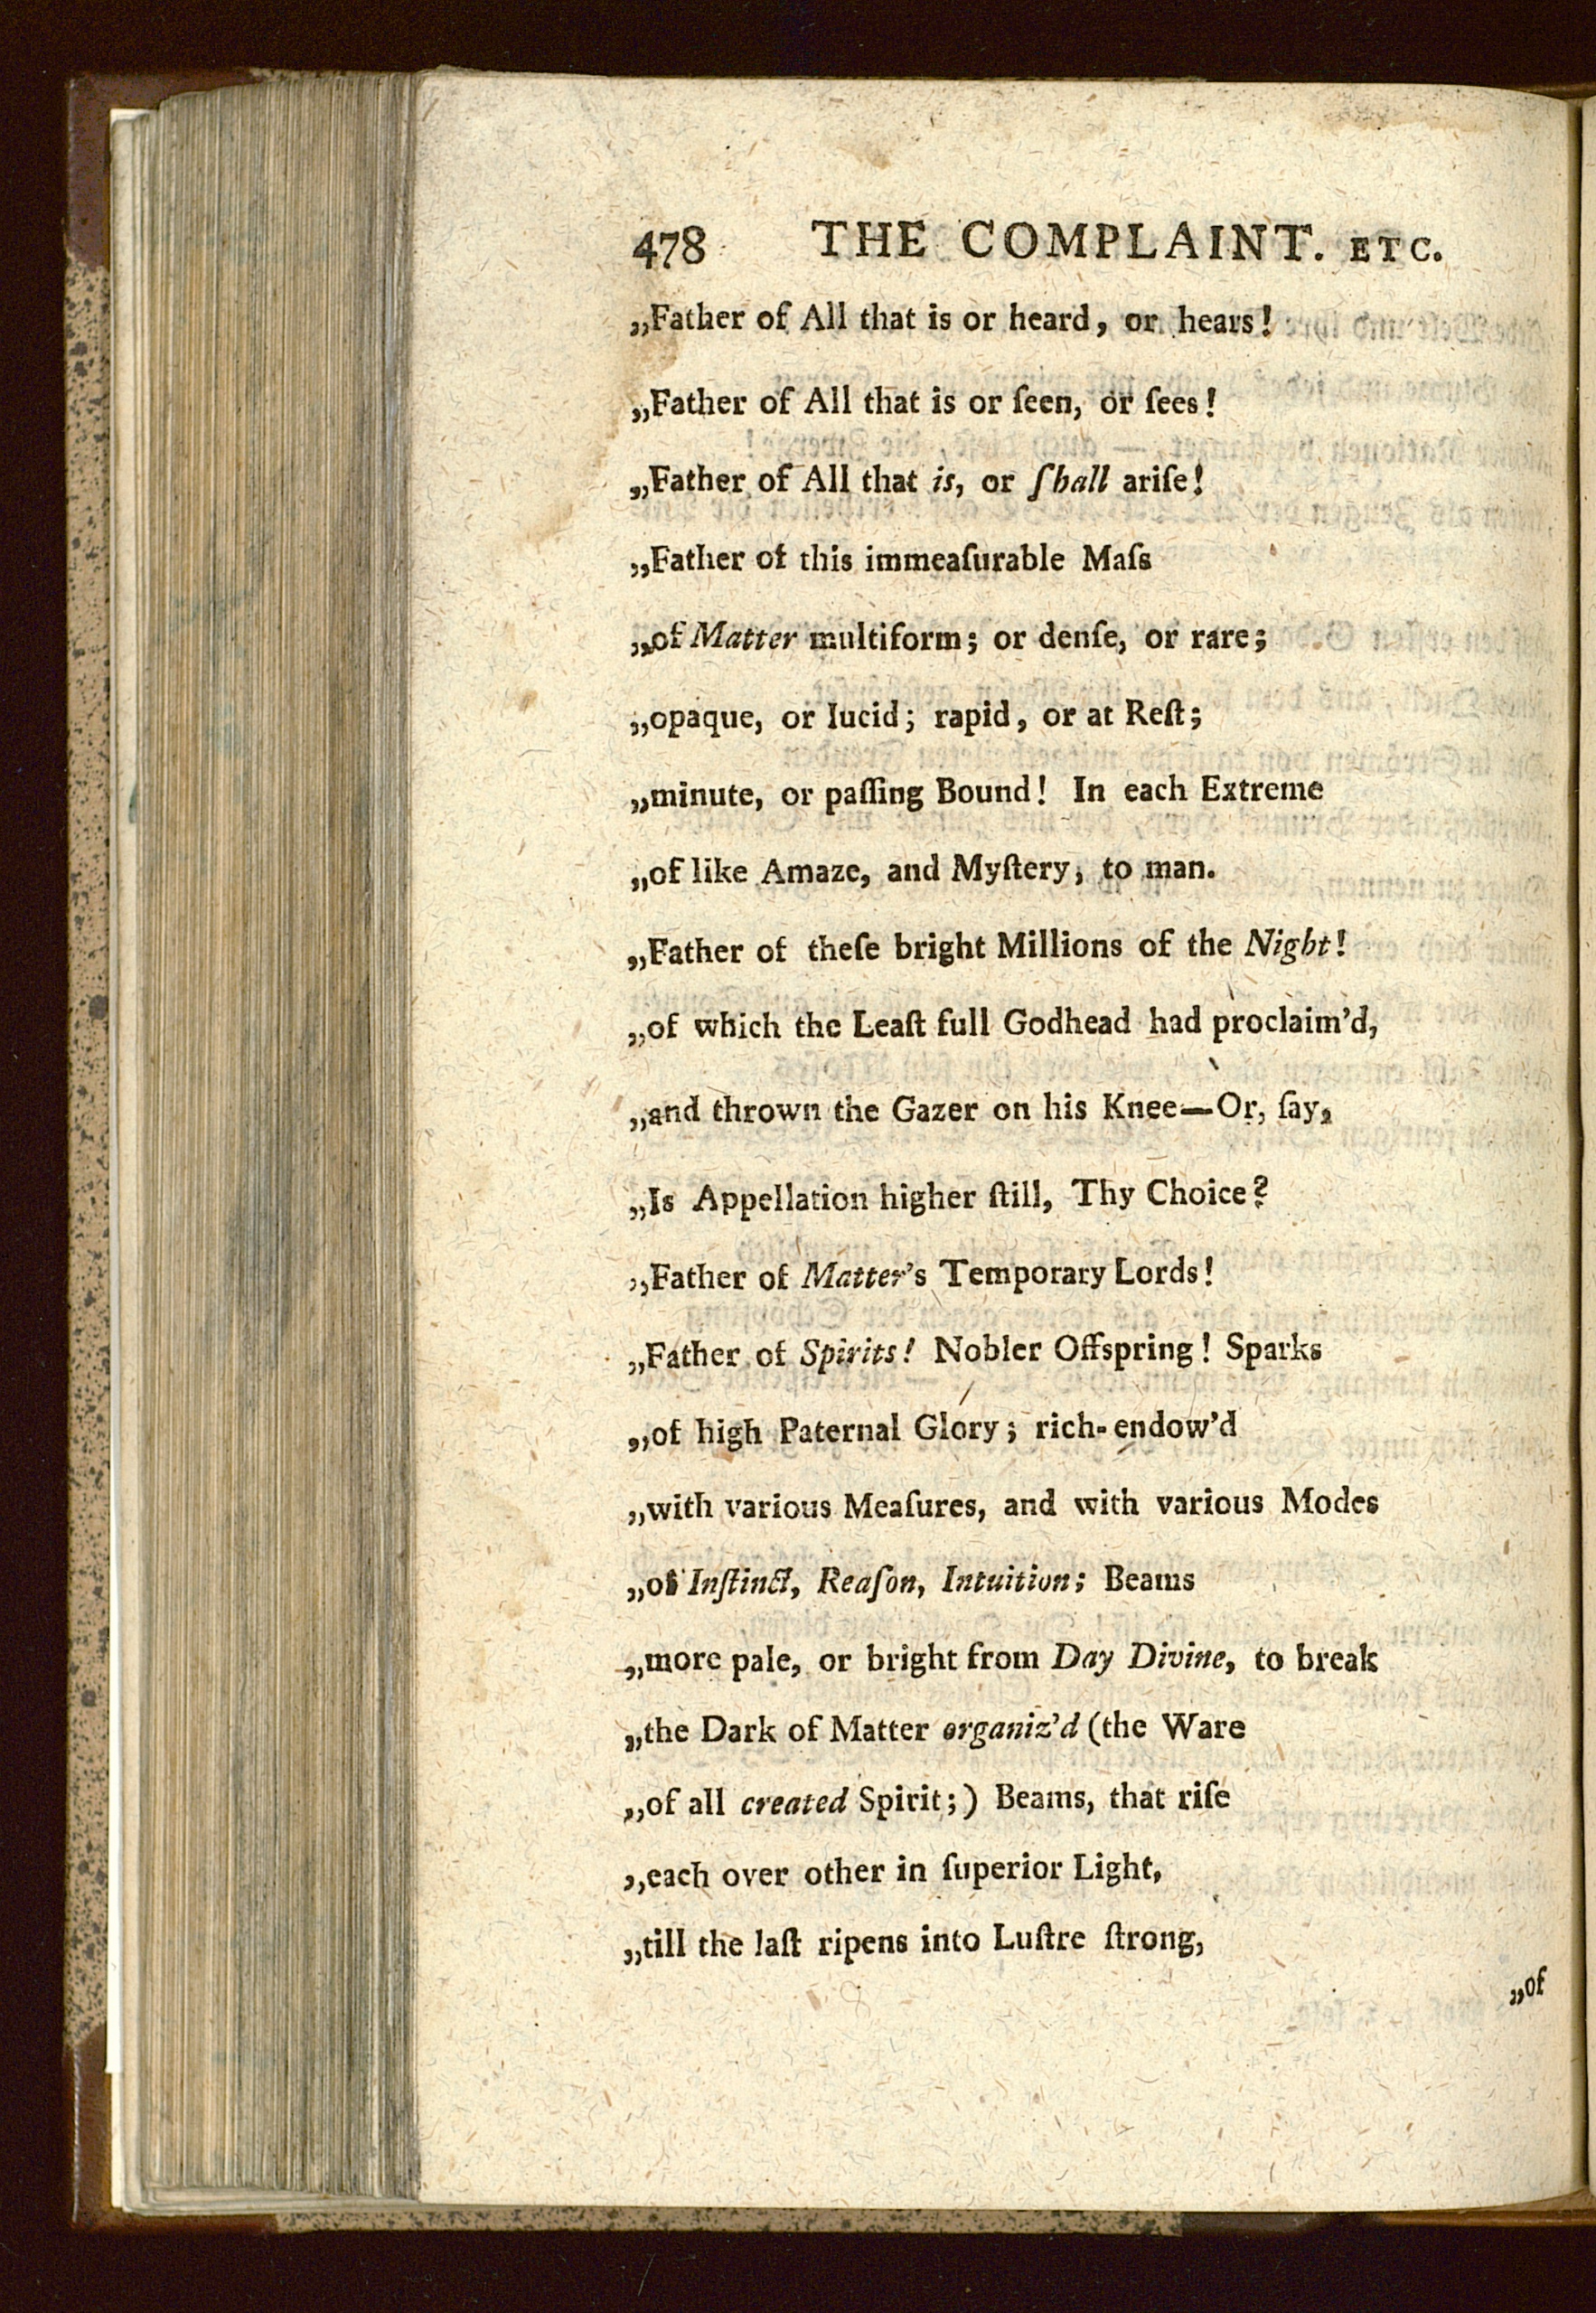 478 THE COMPLAINT. ETC.
„Father of All that is or heard, or hears!
„Father of All that is or ſeen, or ſees!
„Father of All that is, or ſhall ariſe!
„Father of this immeaſurable Maſs
„of Matter multiform; or denſe, or rare;
„opaque, or lucid; rapid, or at Reſt;
„minute, or paſſing Bound! In each Extreme
„of like Amaze, and Myſtery, to man.
„Father of theſe bright Millions of the Night!
„of which the Leaſt full Godhead had proclaim'd,
„and thrown the Gazer on his Knee—Or, ſay,
„Is Appellation higher ſtill, Thy Choice?
„Father of Matter's Temporary Lords!
„Father of Spirits! Nobler Offspring! Sparks
„of high Paternal Glory; rich-endow'd
„with various Meaſures, and with various Modes
„of Inſtinct, Reaſon, Intuition; Beams
„more pale, or bright from Day Divine, to break
„the Dark of Matter organiz'd (the Ware
„of all created Spirit;) Beams, that riſe
„each over other in ſuperior Light,
„till the laſt ripens into Luſtre ſtrong,
„of